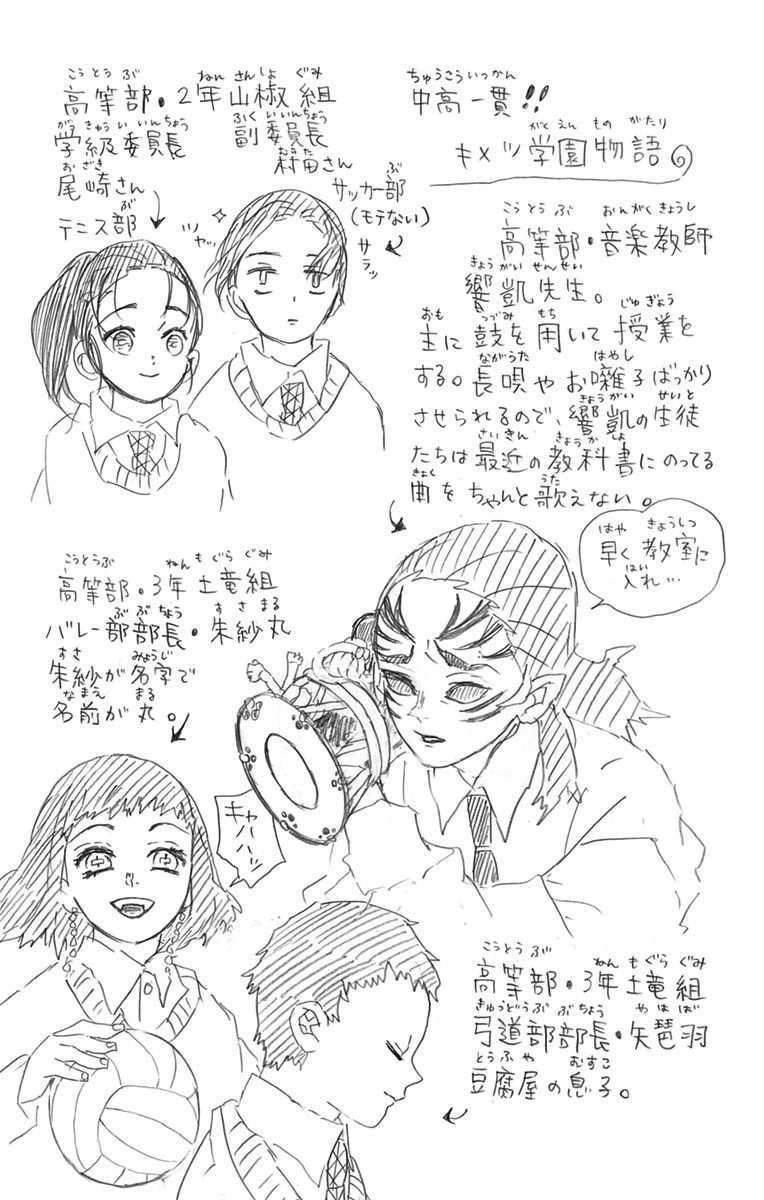 中高一貫!!
キメツ学園物語
高等部・2年山椒組
学級委員長
尾崎さん
テニス部
副委員長
村田さん
サッカー部
(モテない)
ツヤッ
サラッ
高等部・音楽教師
響凱先生。
主に鼓を用いて授業を
する。長唄やお囃子ばっかり
させられるので、響凱の生徒
たちは最近の教科書にのってる
曲をちゃんと歌えない。
早く教室に
入れ…
高等部・3年土竜組
バレー部部長・朱紗丸
朱紗が名字で
名前が丸。
キャハハハッ
高等部・3年土竜組
弓道部部長・矢琶羽
豆腐屋の息子。